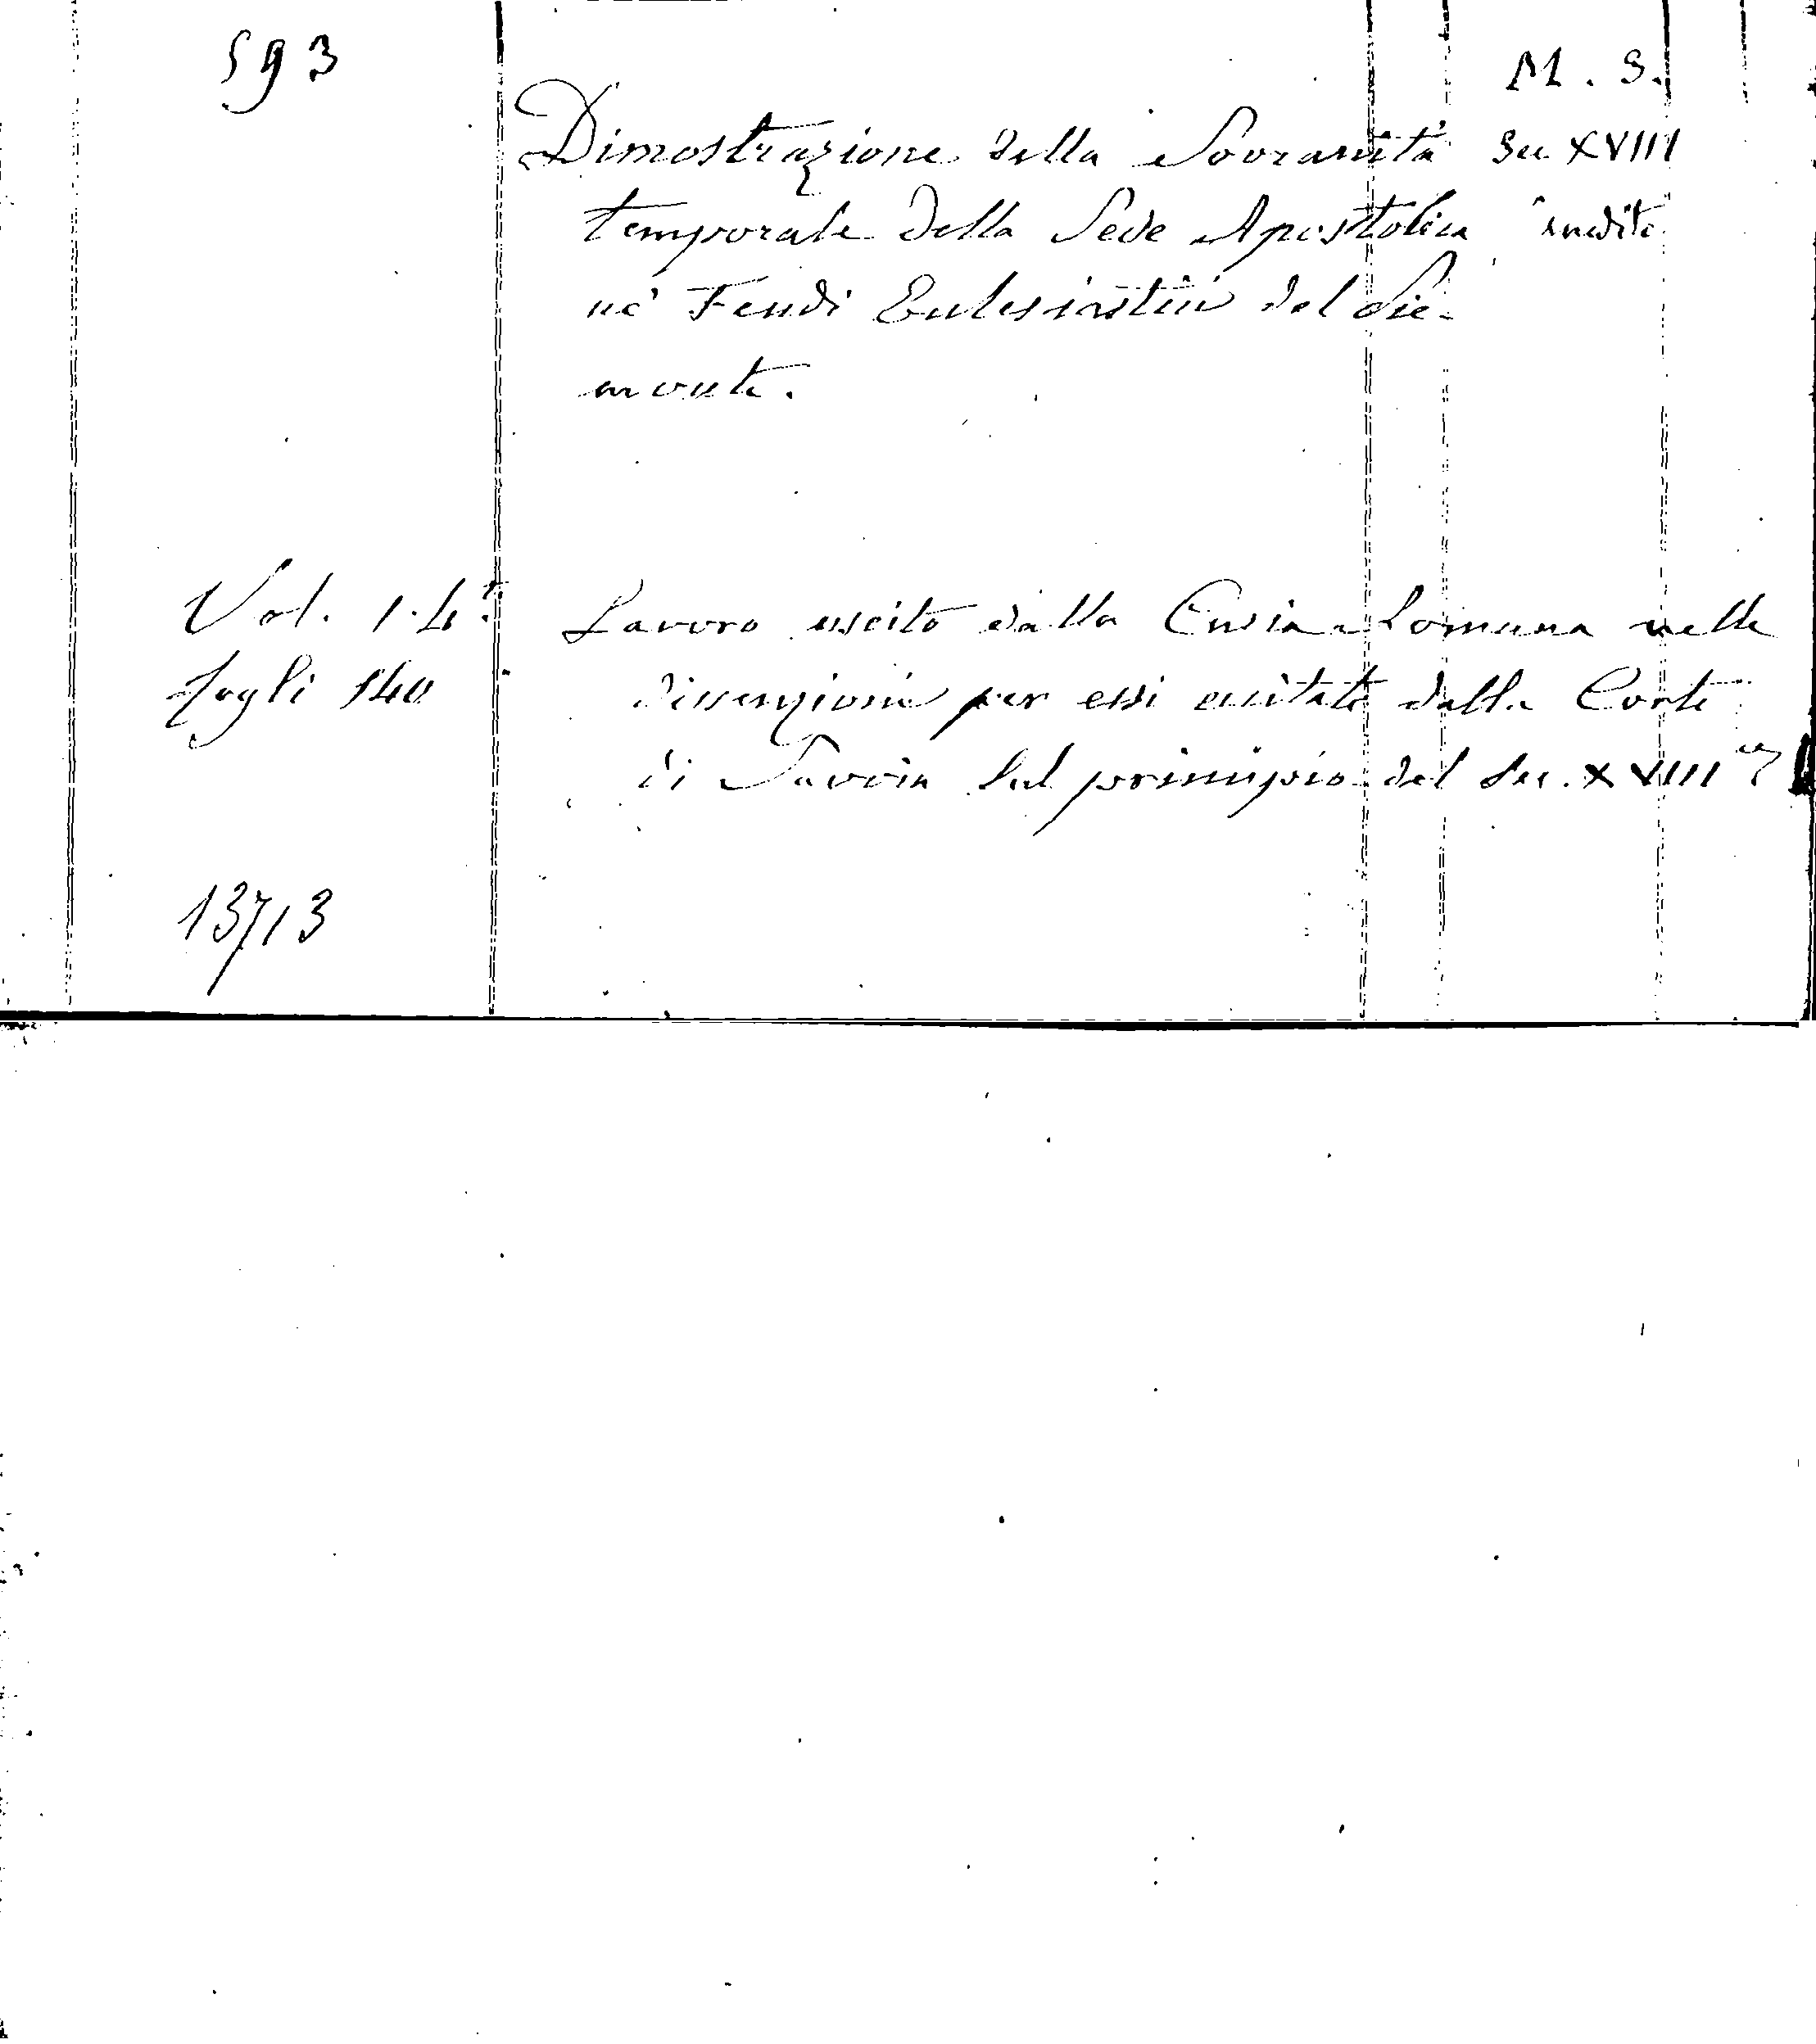 593
M. S.
Dimostrazione della Sovranità Sec XVIII
temporale della Sede Apostolica inedito
ne' Feudi Eclesiastici del Pie-
monte.
Vol. 1. 4.to
Lavoro uscito dalla Curia Romana nelle
fogli 140
dissenzioni per essi eccitate dalla Corte
di Savoia sul principio del Sec. XVIII
13713